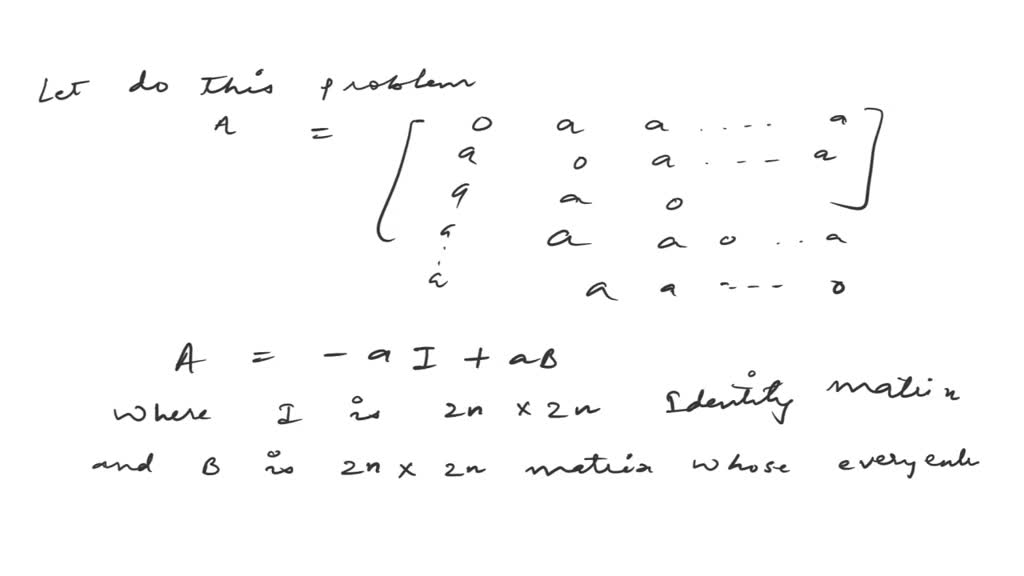 Let do this problem
A = [ 0 a a .... a ]
a 0 a . --- a
a a 0
a a a 0 . . . a
:
a a a ---- 0
A = - a I + aB
where I is 2n × 2n Identity matrix
and B is 2n × 2n matrix whose every